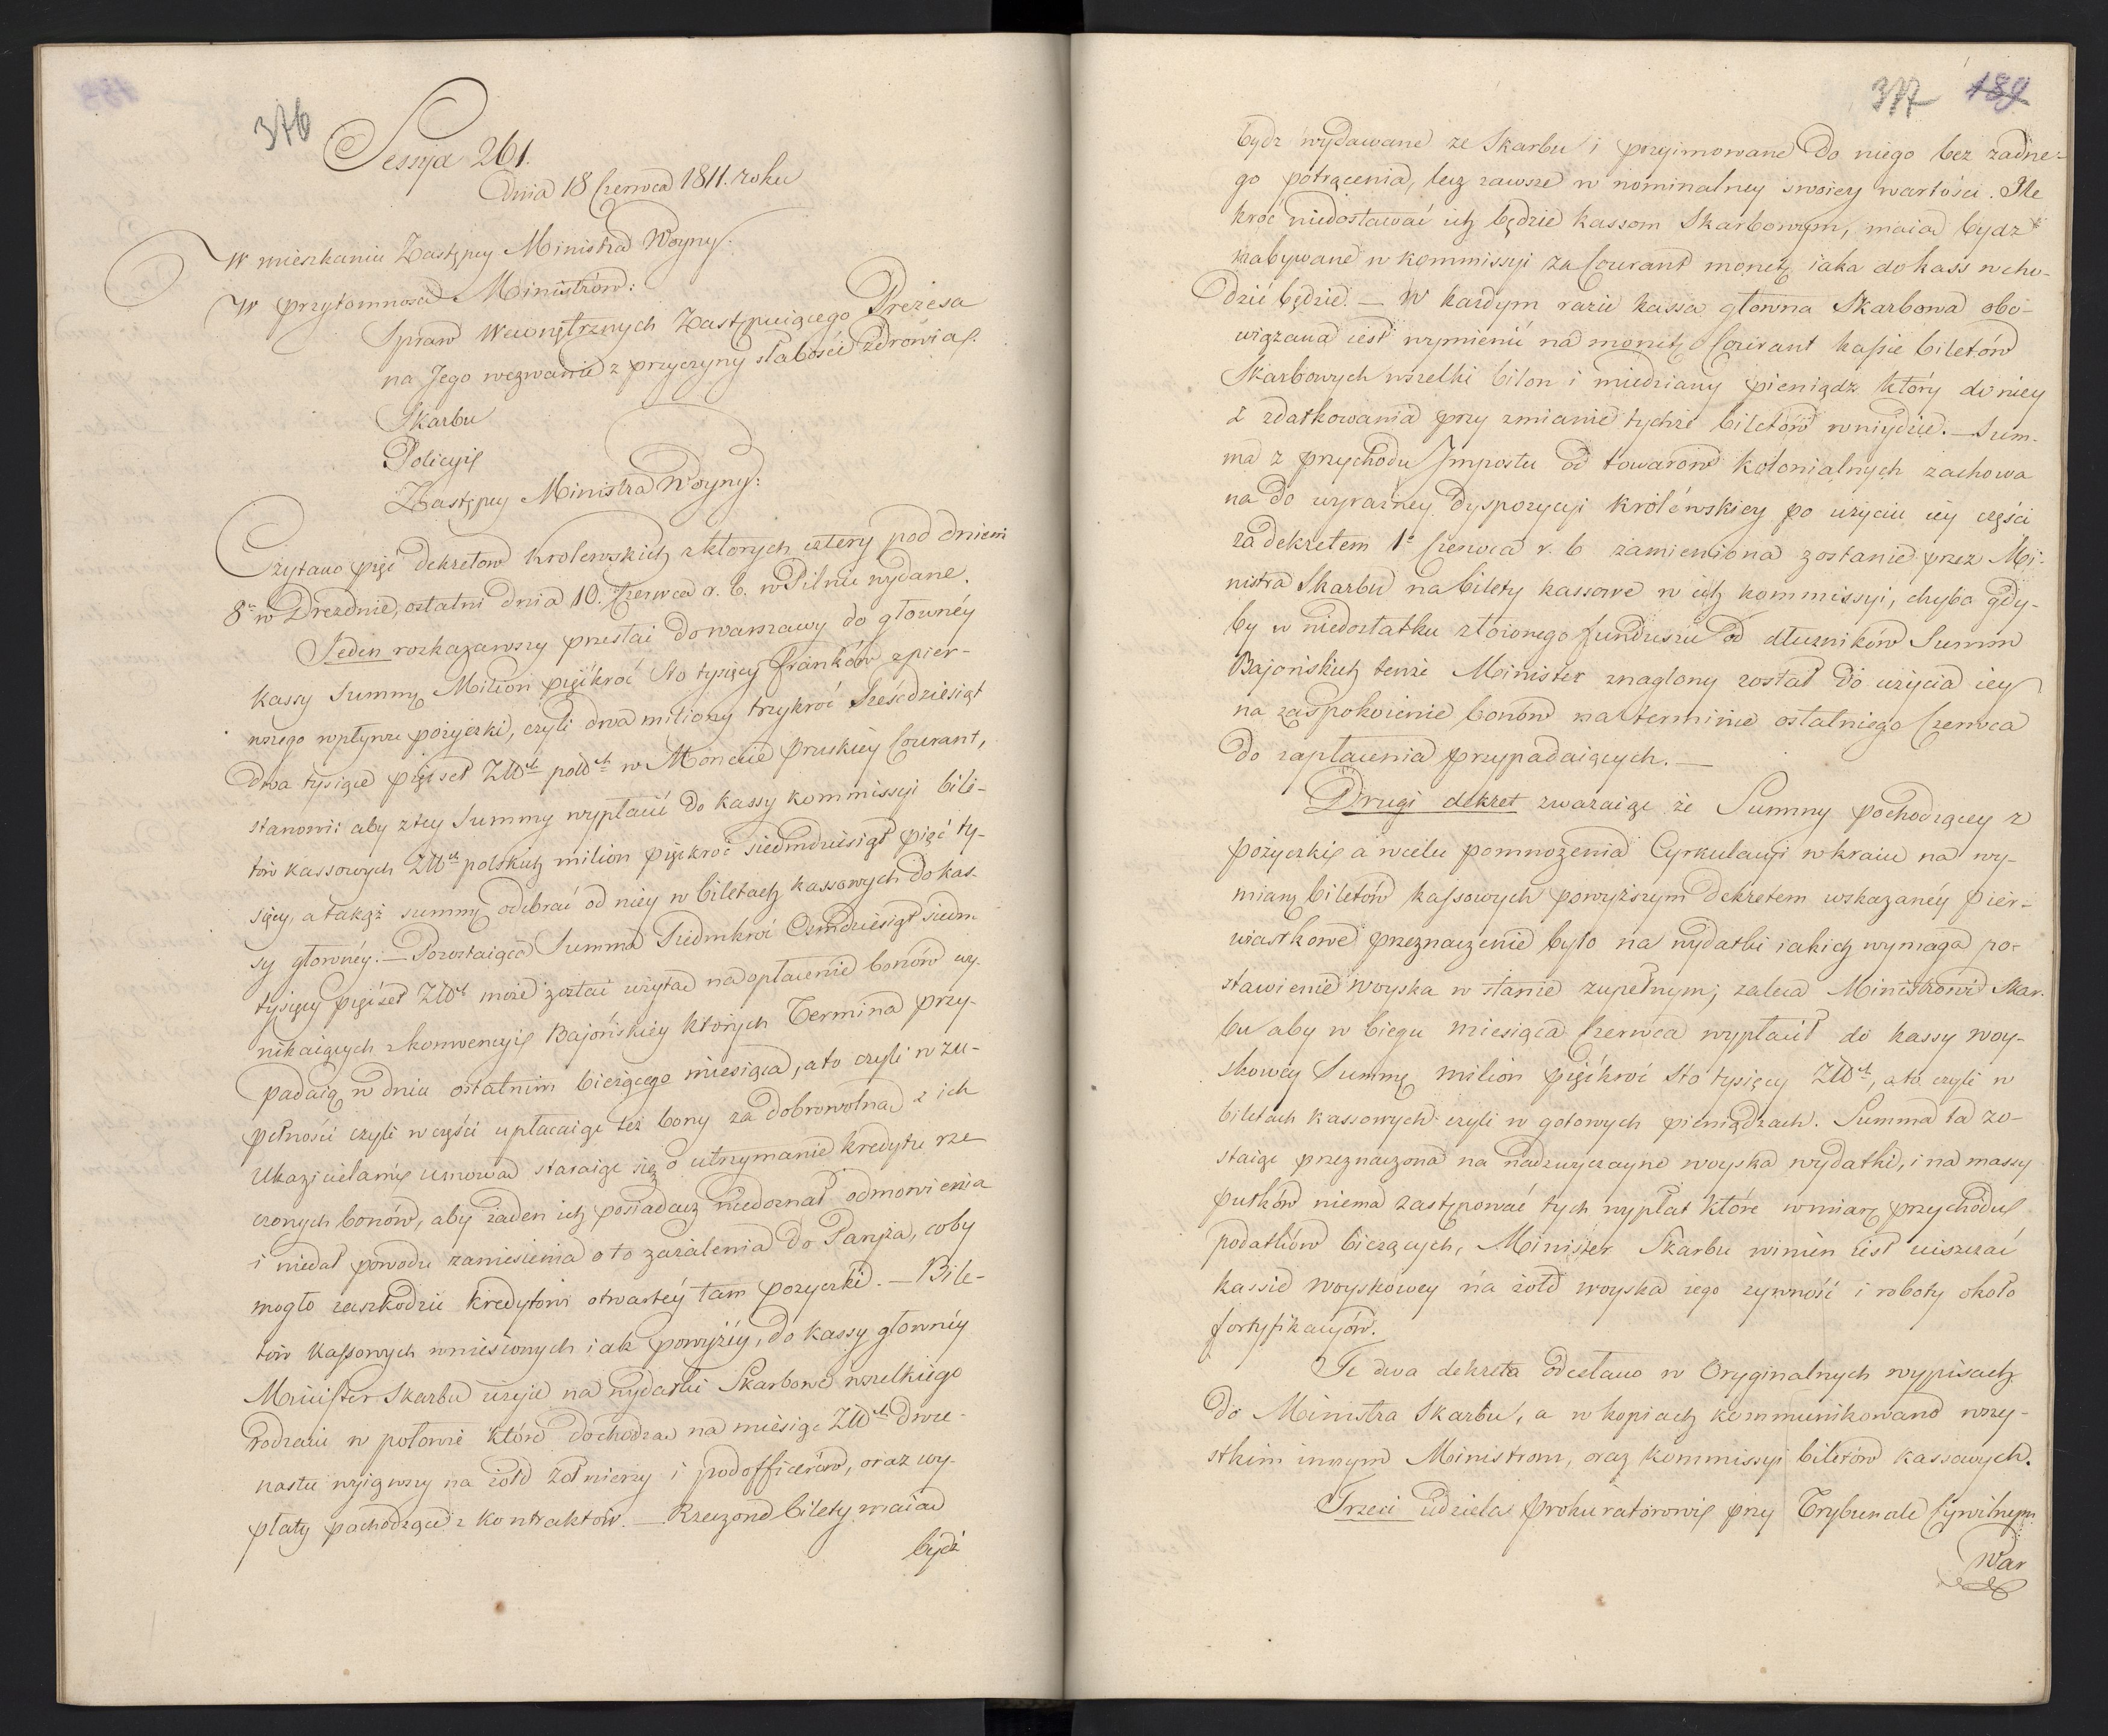 376
Sessyia 261.
Dnia 18 Czerwca 1811. roku
W mieszkaniu Zastępcy Ministra Woyny.
W przytomności Ministrów:
Spraw Wewnętrznych Zastępuiącego Prezesa
na Jego wezwanie z przyczyny słabości zdrowia.
Skarbu
Policyi
Zastępcy Ministra Woyny.
Czytano pięć dekretów Królewskich z których cztery pod dniem
8º w Dreznie, ostatni dnia 10. Czerwca r. b. w Pilnie wydane.
Jeden rozkazawszy przesłać do Warszawy do główney
kassy Summę Milion pięćkroć Sto tysięcy franków z pier-
wszego wpływu pożyczki, czyli dwa miliony trzykroć Sześćdziesiąt
Dwa tysiące pięćset Złłch polłch w Monecie Pruskiey Courant,
stanowi: aby z tey Summy wypłacić do kassy kommissyi bile-
tów kassowych Złłch polskich milion pięćkroć siedmdziesiąt pięć ty-
sięcy, a takąż summę odebrać od niey w biletach kassowych do kas-
sy główney. — Pozostaiąca Summa Siedmkroć Osmdziesiąt siedm
tysięcy pięćset Złłch może zostać użyta na opłacenie bonów wy-
nikaiących z konwencyi Bajońskiey których Termina przy-
padaią w dniu ostatnim bieżącego miesiąca, a to czyli w zu-
pełności czyli w części upłacaiąc też bony za dobrowolną z ich
Okazicielami umową staraiąc się o utrzymanie kredytu rze-
czonych bonów, aby żaden ich posiadacz niedoznał odmowienia
i niedał powodu zaniesienia o to zażalenia do Paryża, coby
mogło zaszkodzić kredytowi otwartéy tam pożyczki. — Bile-
tów kassowych wniesionych iak powyżéy, do kassy głównéy
Minister Skarbu użyie na wydatki Skarbowe wszelkiego
rodzaiu w połowie które dochodzą na miesiąc Złłch dwu-
nastu wyiąwszy na żołd żołnierzy i podofficerów, oraz wy-
płaty pochodzące z kontraktów. — Rzeczone bilety maią
bydź
377 189
bydz wydawane ze Skarbu i przyimowane do niego bez żadne-
go potrącenia, lecz zawsze w nominalney swoiey wartości. Ile
kroć niedostawać ich będzie kassom Skarbowym, maią bydz
nabywane w kommissyi za Courant monetę iaka do kass wcho-
dzić będzie. — W każdym razie kassa główna Skarbowa obo-
wiązana iest wymienić na monetę Courant kasie biletów
Skarbowych wszelki bilon i miedziany pieniądz który do niey
z zdatkowania przy zmianie tychże biletów wniydzie. — Sum-
ma z przychodu Impostu od towarów kolonialnych zachowa
na do wyraźney dyspozycyi królewskiey po użyciu iey części
za dekretem 1º Czerwca r. b zamieniona zostanie przez Mi-
nistra Skarbu na bilety kassowe w ich kommissyi, chyba gdy-
by w niedostatku złożonego funduszu od dłużników Summ
Bajońskich tenże Minister znaglony został do użycia iey
na zaspokoienie bonów na terminie ostatniego Czerwca
do zapłacenia przypadaiących. —
Drugi dekret zważaiąc że Summy pochodzącey z
pożyczki a w celu pomnożenia Cyrkulacyi w kraiu na wy-
mianę biletów kassowych powyższym Dekretem wskazanéy pier-
wiastkowe przeznaczenie było na wydatki iakich wymaga po-
stawienie Woyska w stanie zupełnym; zaleca Ministrowi Skar-
bu aby w biegu miesiąca Czerwca wypłacił do kassy woy-
skowey Summę milion pięćkroć Sto tysięcy Złłch, a to czyli w
biletach kassowych czyli w gotowych pieniądzach. Summa ta zo-
staiąc przeznaczona na nadzwyczayne woyska wydatki, i na massy
pułków niema zastępować tych wypłat które w miarę przychodu
podatków bieżących, Minister Skarbu winien iest uiszczać
kassie woyskowey na żołd woyska iego żywność i roboty około
fortyfikacyów.
Te dwa dekreta odesłano w Oryginalnych wypisach
do Ministra Skarbu, a w kopiach kommunikowano wszy-
stkim innym Ministrom, oraz kommissyi biletów kassowych.
Trzeci udziela Prokuratorowi przy Trybunale Cywilnym
War